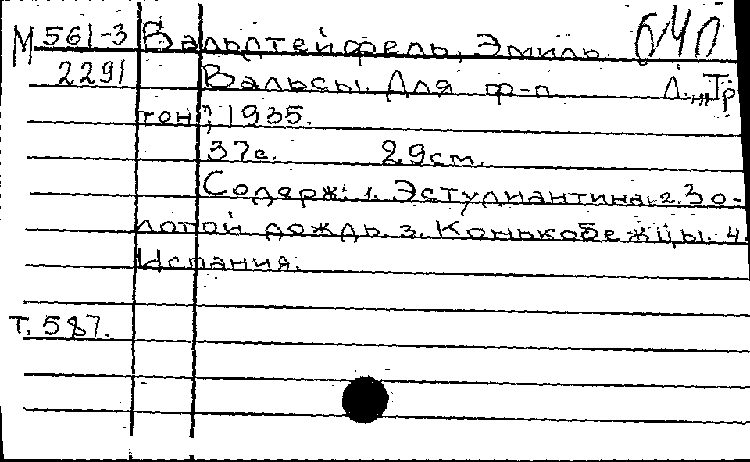 М 561-3 Вальдтейфель, Эмиль.
2291 Вальсы. Для ф-п. Л., „Тр
тон”, 1935.
37с. 29см.
Содерж: 1. Эстудиантина. 2. Зо-
лотой дождь. 3. Конькобежцы. 4.
Испания.
Т. 587.